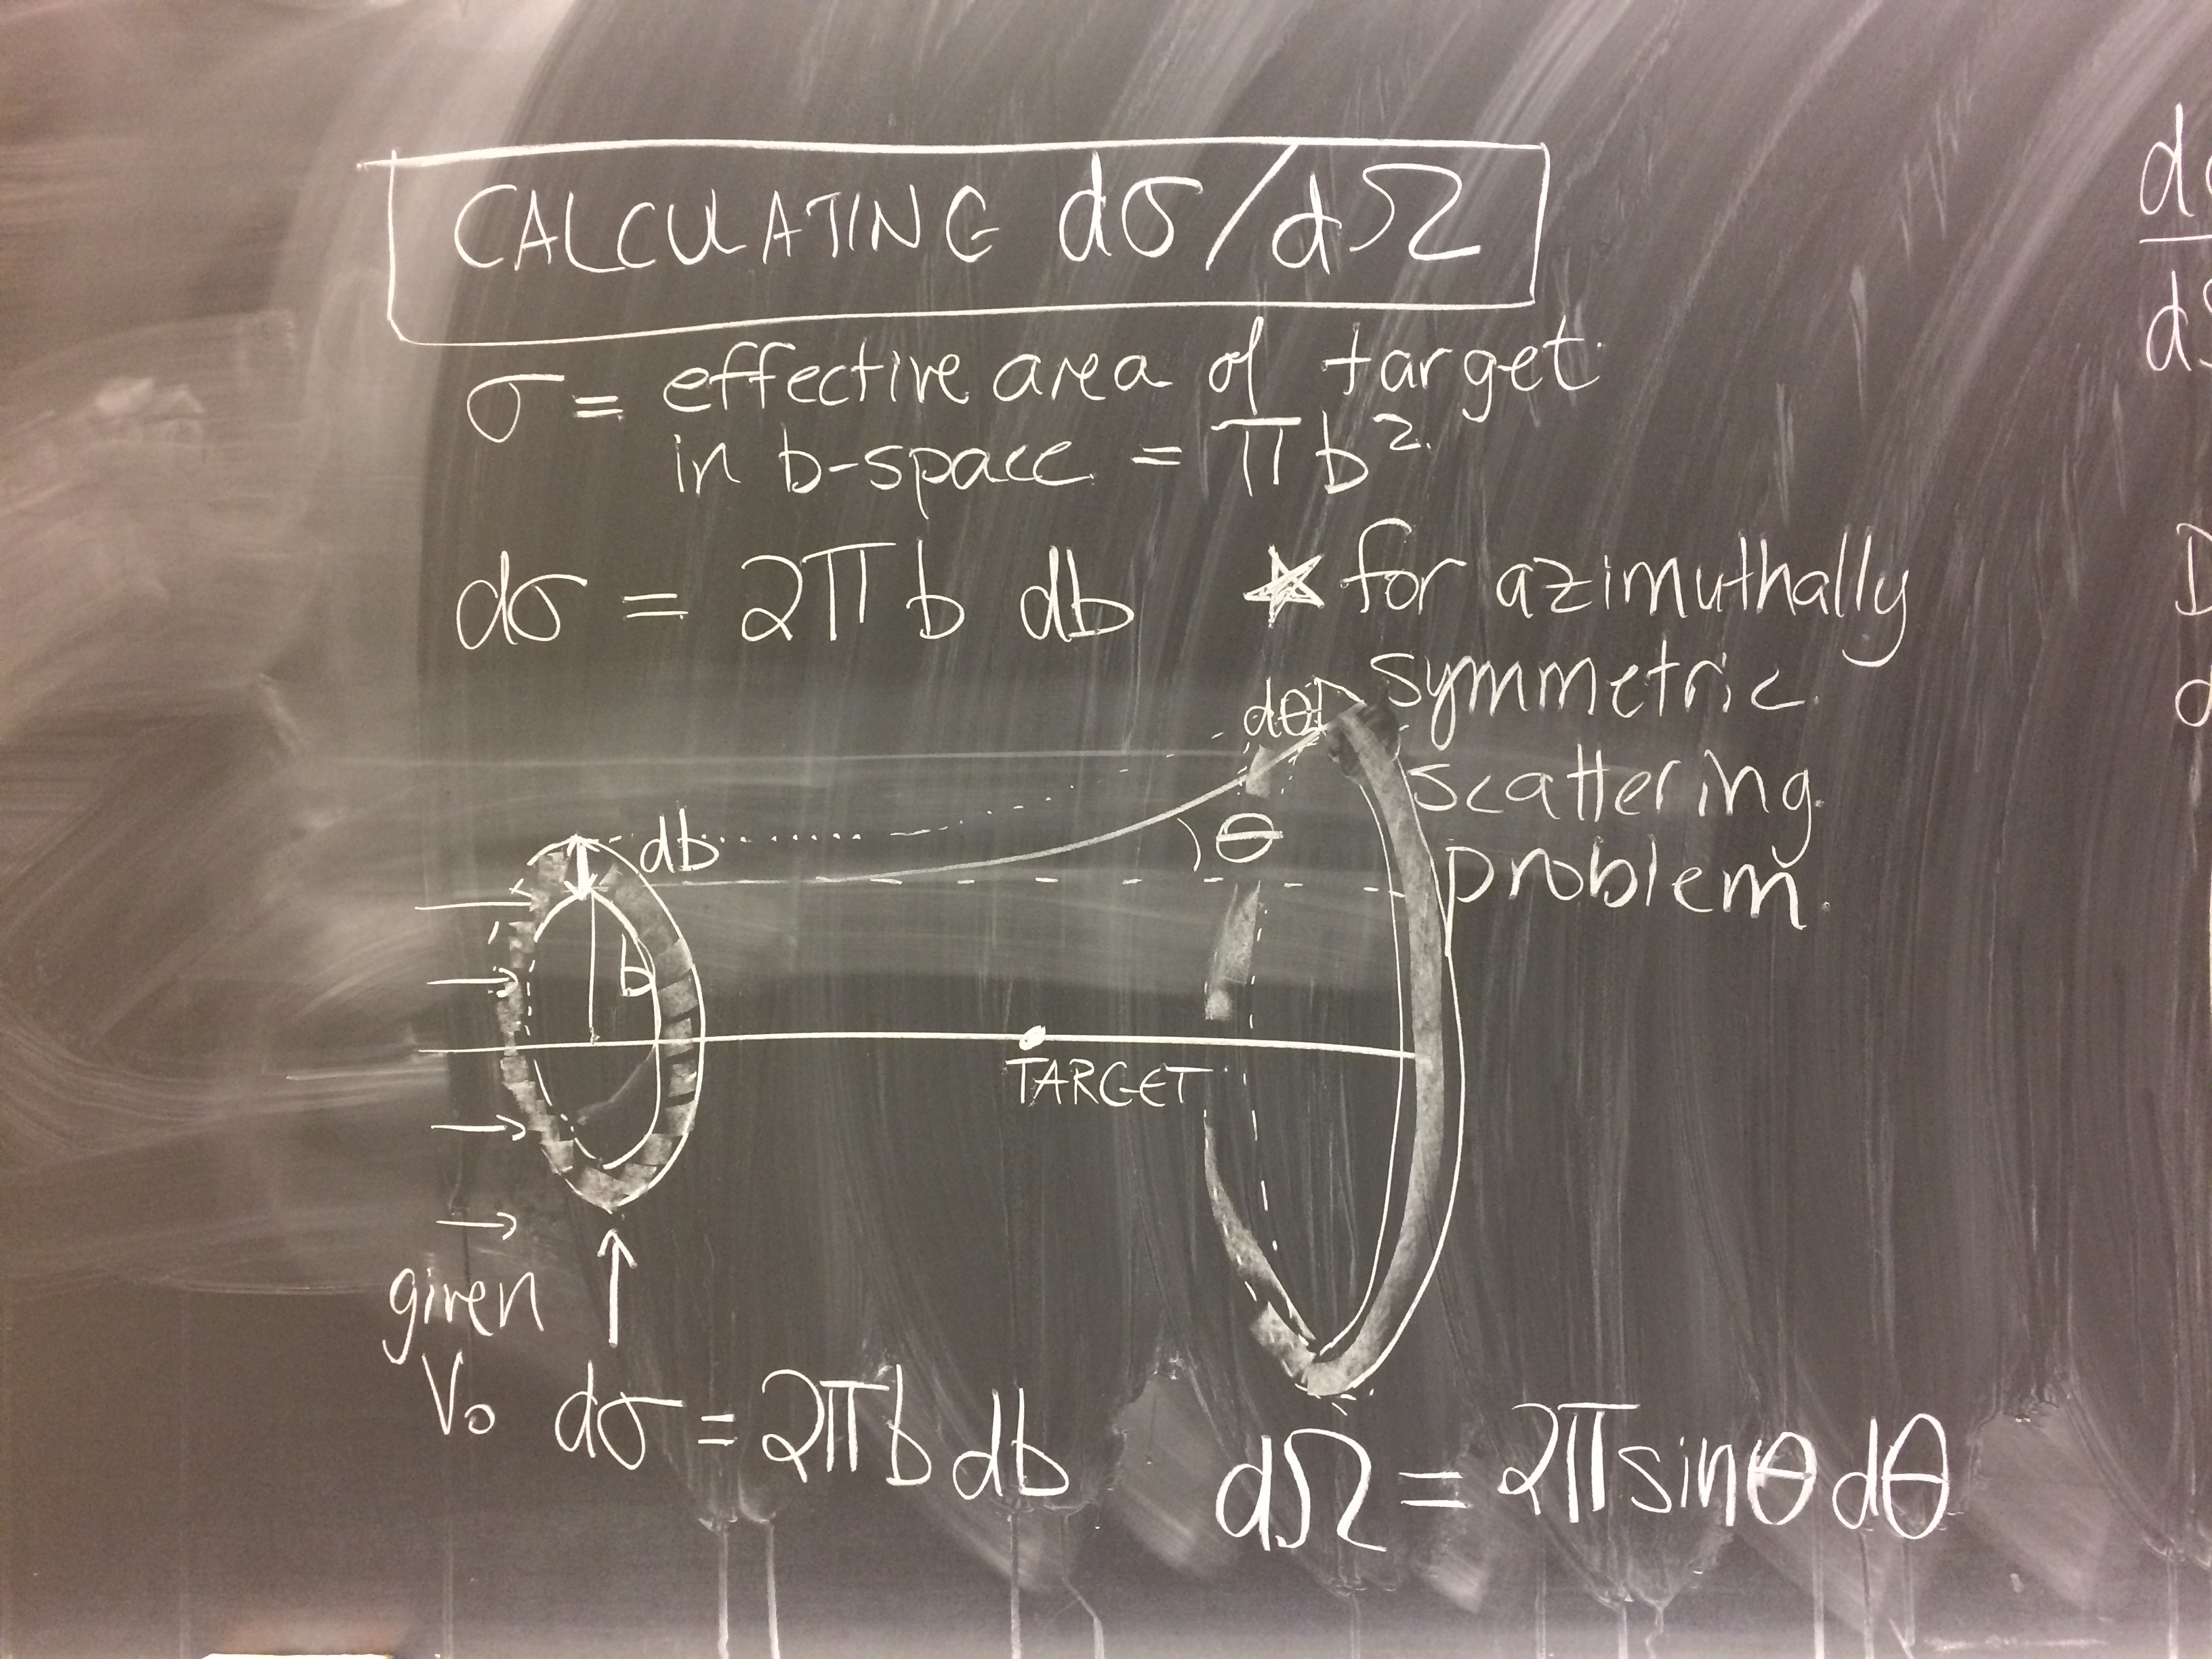 CALCULATING dσ/dΩ
σ = effective area of target
in b-space = πb²
dσ = 2πb db ★ for azimuthally
symmetric
scattering
problem.
dθ
db
θ
b
TARGET
given
V₀
dσ = 2πb db
dΩ = 2π sinθ dθ